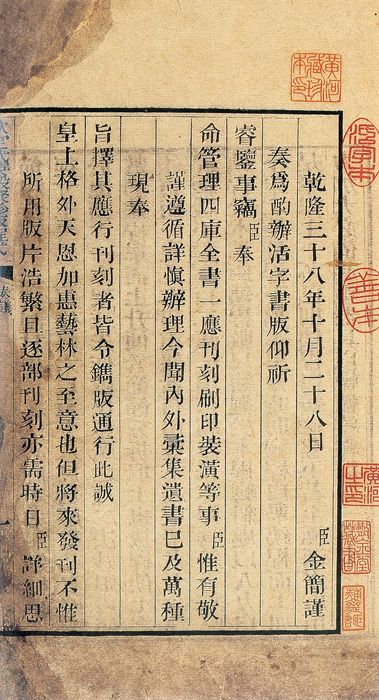 乾隆三十八年十月二十八日 臣 金簡謹
奏爲酌辦活字書版仰祈
睿鑒事竊 臣 奉
命管理四庫全書一應刊刻刷印裝潢等事 臣 惟有敬
謹遵循詳慎辦理今聞內外彙集遺書已及萬種
現奉
旨擇其應行刊刻者皆令鐫版通行此誠
皇上格外天恩加惠藝林之至意也但將來發刊不惟
所用版片浩繁且逐部刊刻亦需時日 臣 詳細思
善本